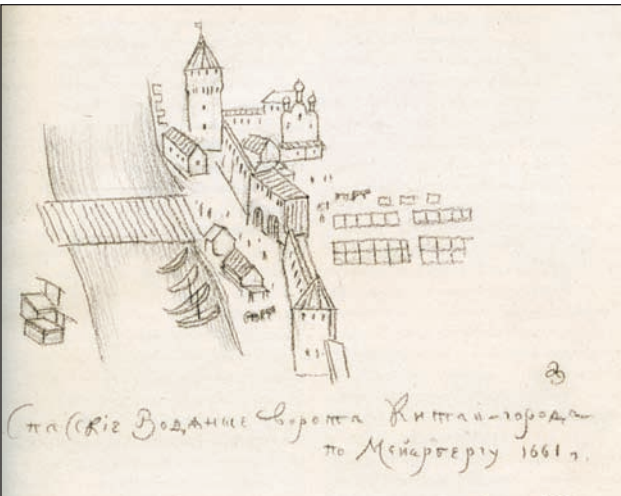 Спасскіе Водяные ворота Китай-города
по Мейербергу 1661 г.